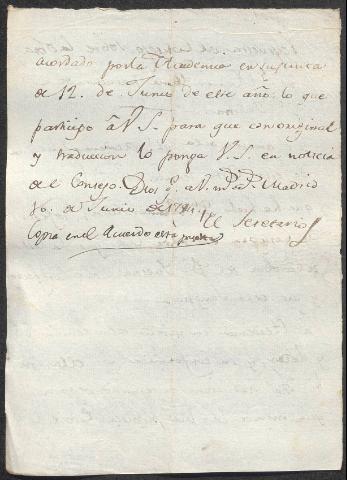 acordado por la Academia en su junta
de 12. de Junio de este año. lo que
participo à V. S. para que con original
y traduccion lo ponga V. S. en noticia
del Consejo. Dios g. a V. m. a. Madrid
16. de Junio de
El Secretario
Copia en el Acuerdo esta puesta